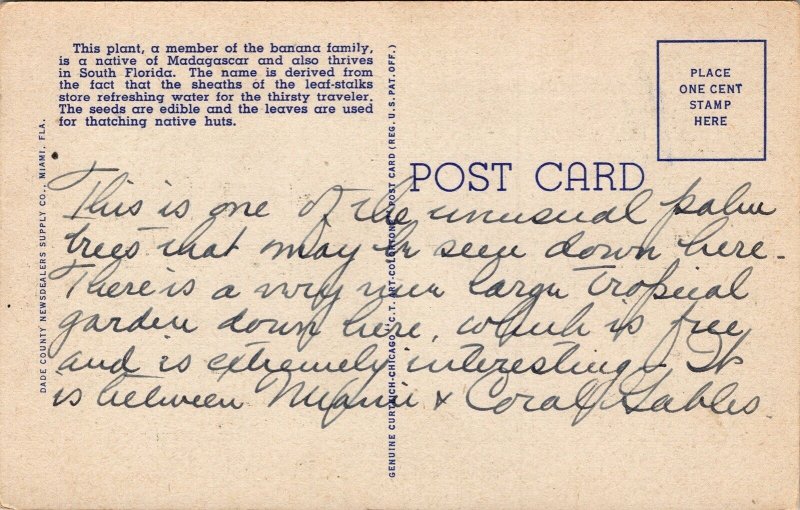 This plant, a member of the banana family,
is a native of Madagascar and also thrives
in South Florida. The name is derived from
the fact that the sheaths of the leaf-stalks
store refreshing water for the thirsty traveler.
The seeds are edible and the leaves are used
for thatching native huts.
DADE COUNTY NEWSDEALERS SUPPLY CO., MIAMI, FLA.
GENUINE CURTEICH-CHICAGO "C.T. ART-COLORTONE" POST CARD (REG. U.S. PAT. OFF.)
PLACE
ONE CENT
STAMP
HERE
POST CARD
This is one of the unusual palm
trees that may be seen down here.
There is a very new large tropical
garden down here, which is free
and is extremely interesting - It
is between Miami & Coral Gables.